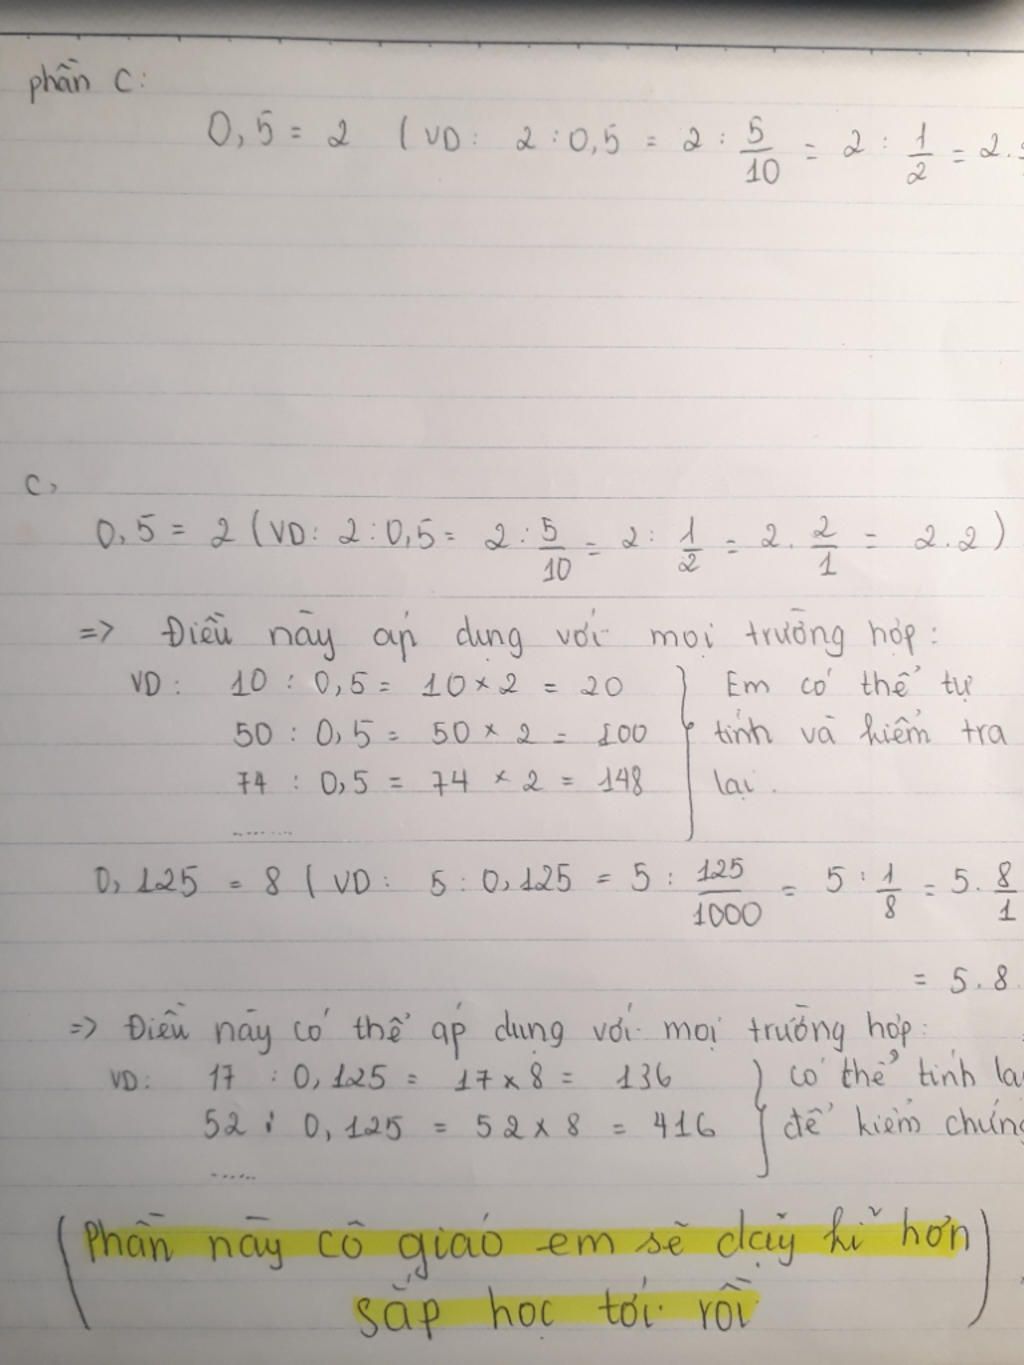 phần c:
0,5 = 2 (VD: 2 : 0,5 = 2 : 5/10 = 2 : 1/2 = 2.
c,
0,5 = 2 (VD: 2 : 0,5 = 2 : 5/10 = 2 : 1/2 = 2 . 2/1 = 2.2)
=> Điều này áp dụng với mọi trường hợp:
VD: 10 : 0,5 = 10 × 2 = 20 } Em có thể tự
50 : 0,5 = 50 × 2 = 100 tính và kiểm tra
74 : 0,5 = 74 × 2 = 148 lại.
.......
0,125 = 8 (VD: 5 : 0,125 = 5 : 125/1000 = 5 : 1/8 = 5 . 8/1
= 5.8
=> Điều này có thể áp dụng với mọi trường hợp:
VD: 17 : 0,125 = 17 × 8 = 136 } có thể tính
52 : 0,125 = 52 × 8 = 416 để kiểm
......
(Phần này cô giáo em sẽ dạy kĩ hơn
sắp học tới rồi)